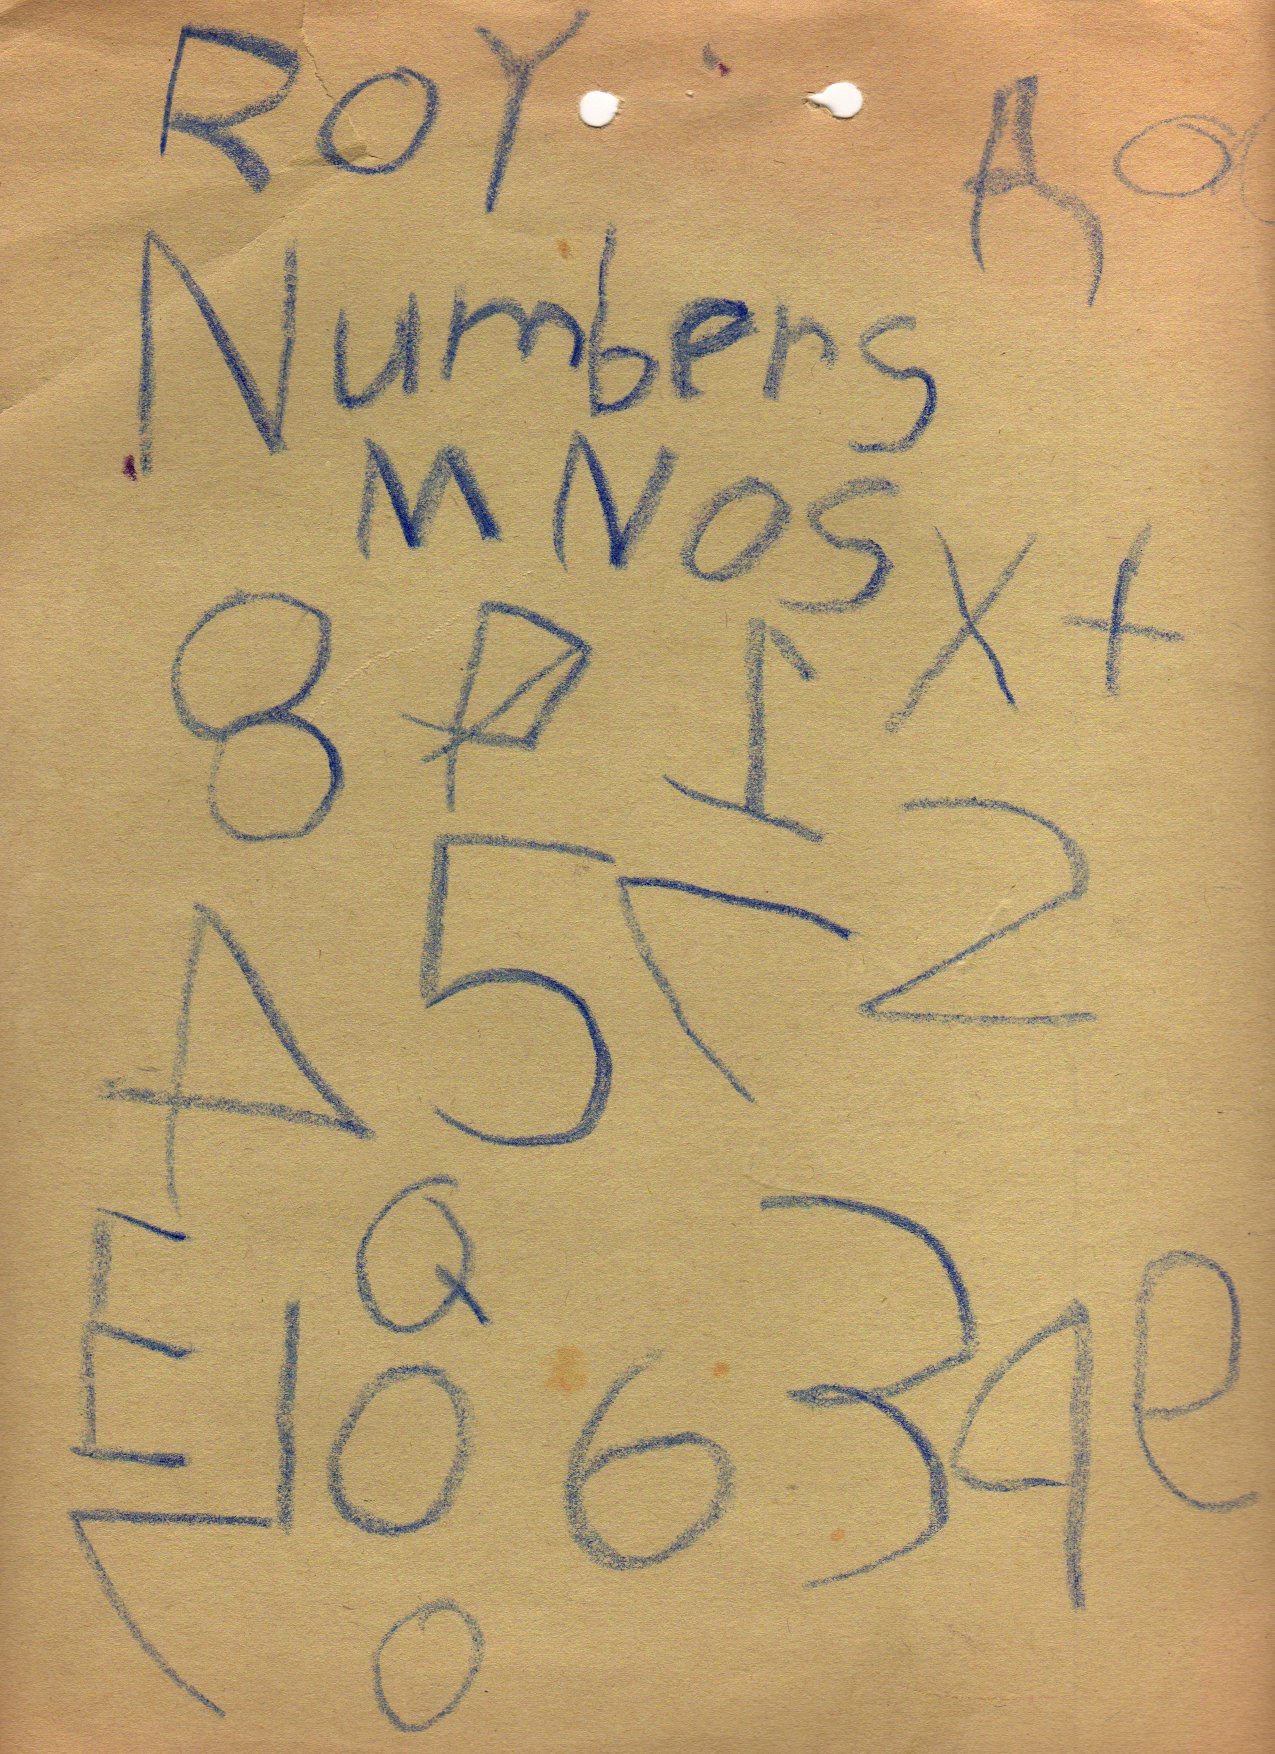 ROY Ro
Numbers
MNOS X+
8 P 1
5 2
4
Q
E 3 9 e
10 6
0